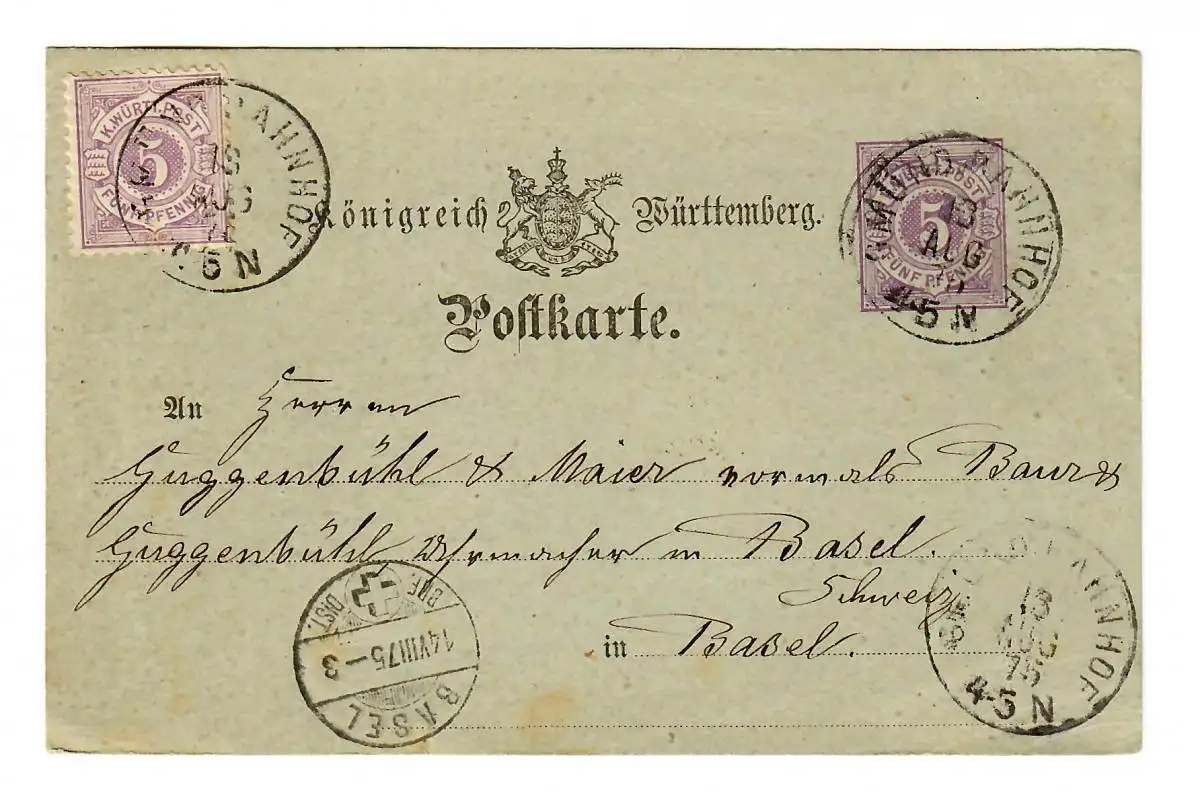 K. WÜRTT. POST
5
FÜNF PFENNIG
BAHNHOF
13
AUG
5 N
Königreich Württemberg.
Postkarte.
5
FÜNF PFENNIG
GMÜND BAHNHOF
13
AUG
75
4-5 N
An Herren
Guggenbühl & Maier vormals Baur &
Guggenbühl Uhrmacher in Basel.
Schweiz
in Basel.
BRF. DIST.
14 VIII 75 – 3
BASEL
GMÜND BAHNHOF
13
AUG
75
4-5 N